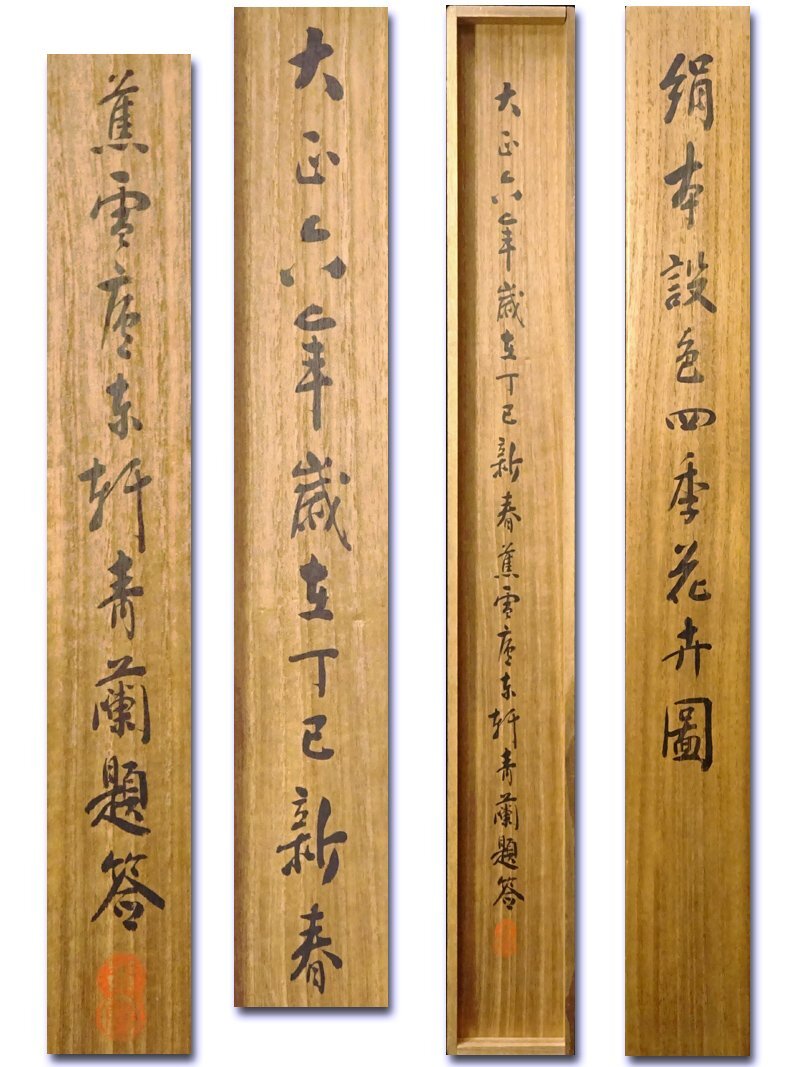 絹本設色四季花卉圖
大正六年歳在丁巳新春蕉雪廬東軒青蘭題签
大正六年歳在丁巳新春
蕉雪廬東軒青蘭題签